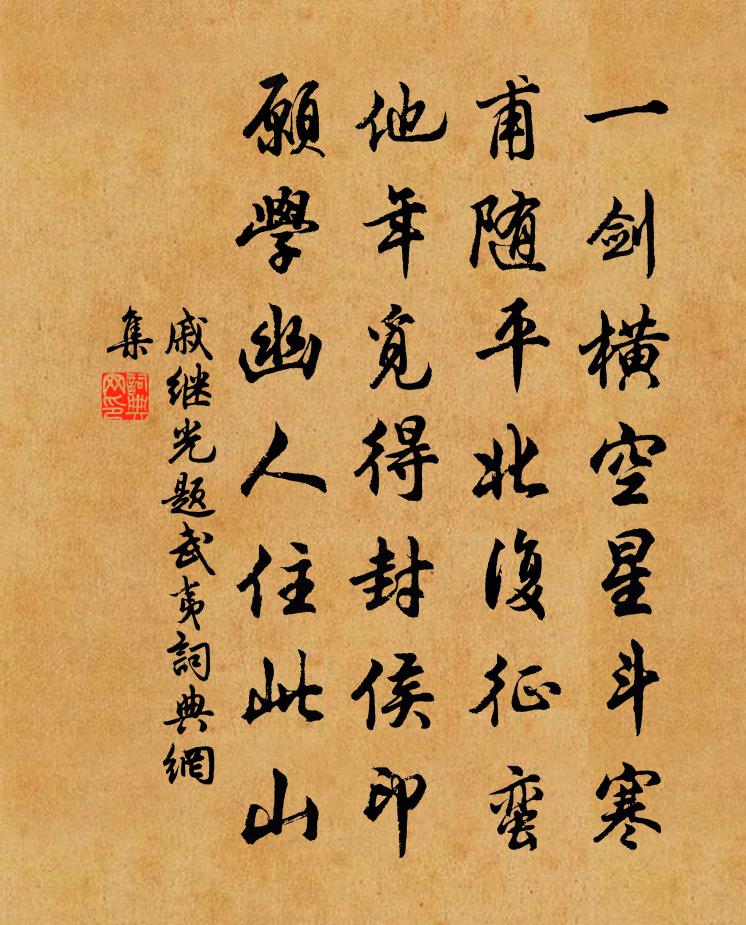 一剑横空星斗寒
甫随平北復征蛮
他年觅得封侯印
願學幽人住此山
戚继光题武夷詞典網
集
詞典网印